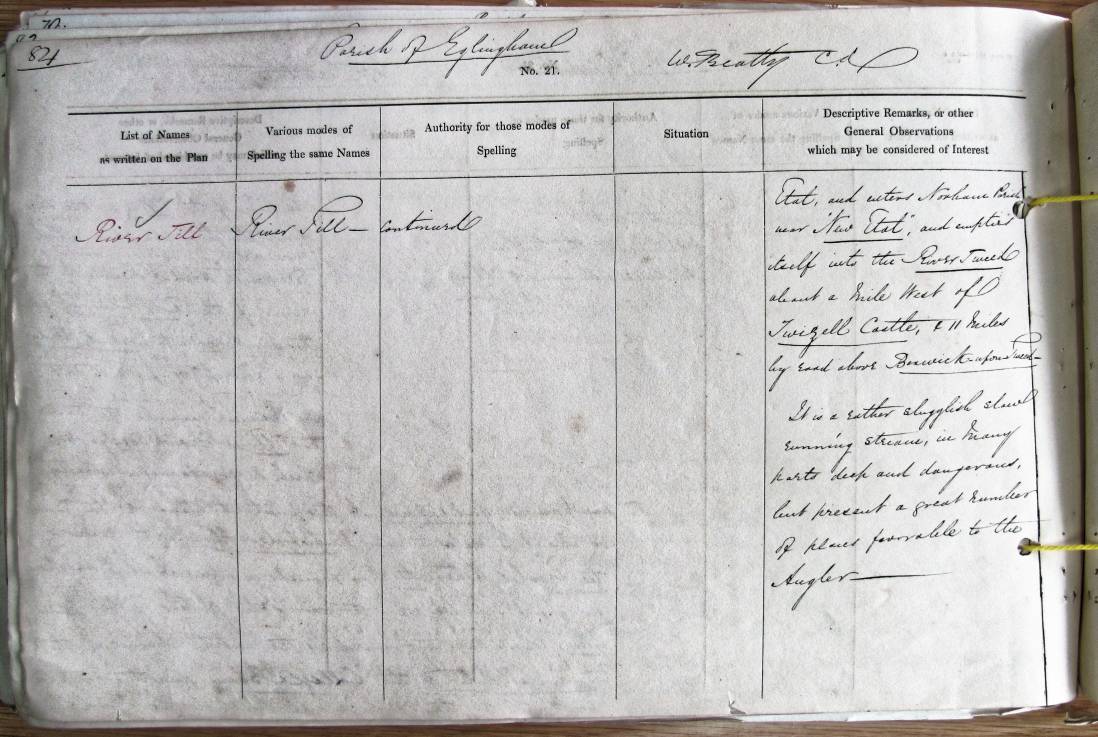 84
Parish of Eglingham
No. 21.
W. Beatty C.A
List of Names
as written on the Plan
Various modes of
Spelling the same Names
Authority for those modes of
Spelling
Situation
Descriptive Remarks, or other
General Observations
which may be considered of Interest
River Till
River Till — continued
Etal, and enters Norham Parish
near "New Etal", and empties
itself into the River Tweed
about a Mile West of
Twizell Castle, & 11 Miles
by road above Berwick-upon-Tweed—
It is a rather slugglish slow
running stream, in Many
parts deep and dangerous,
but present a great number
of places favorable to the
Angler—